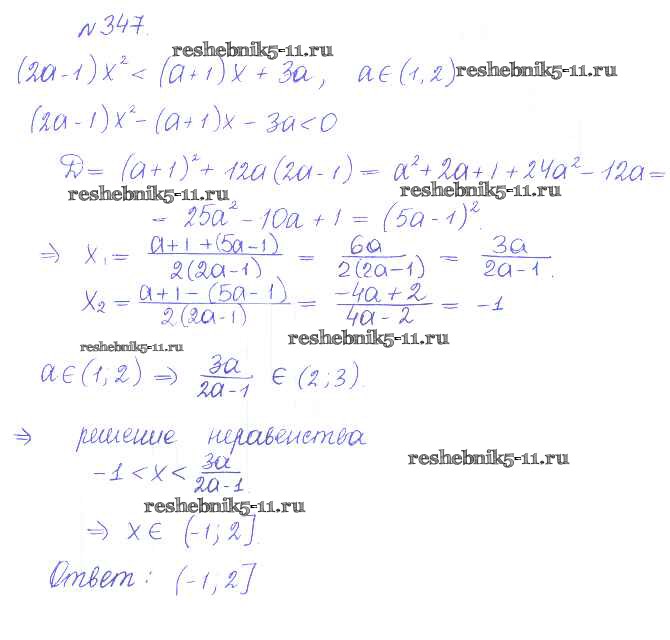 №347.
reshebnik5-11.ru
(2a-1)x² < (a+1)x + 3a, a∈(1,2)
reshebnik5-11.ru
(2a-1)x² - (a+1)x - 3a < 0
D = (a+1)² + 12a(2a-1) = a² + 2a + 1 + 24a² - 12a =
reshebnik5-11.ru reshebnik5-11.ru
= 25a² - 10a + 1 = (5a-1)².
⇒ x₁ = (a+1+(5a-1))/(2(2a-1)) = 6a/(2(2a-1)) = 3a/(2a-1).
x₂ = (a+1-(5a-1))/(2(2a-1)) = (-4a+2)/(4a-2) = -1
reshebnik5-11.ru
reshebnik5-11.ru
a∈(1;2) ⇒ 3a/(2a-1) ∈ (2;3).
⇒ решение неравенства
reshebnik5-11.ru
-1 < x < 3a/(2a-1).
reshebnik5-11.ru
⇒ x∈ (-1; 2].
Ответ: (-1; 2]